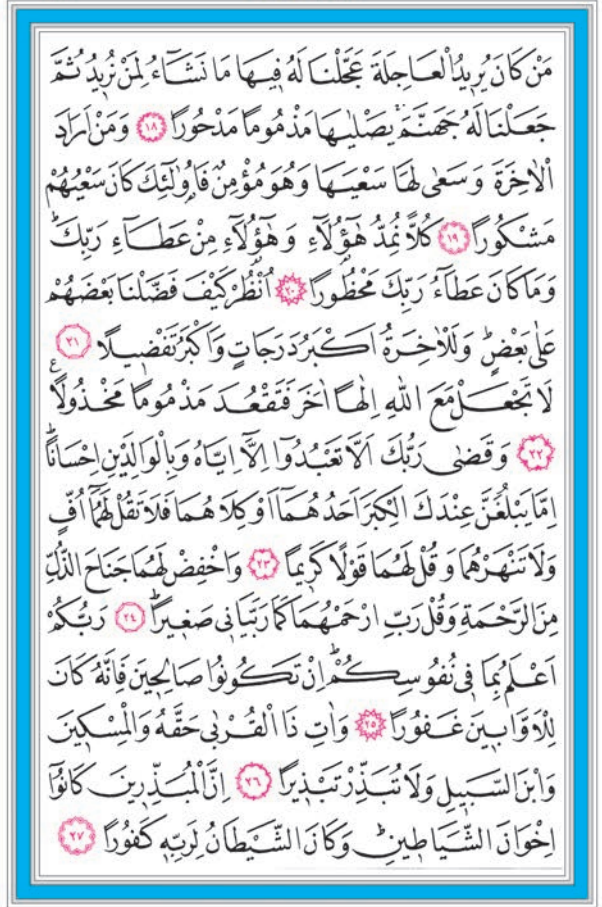 مَنْ كَانَ يُرِيدُ الْعَاجِلَةَ عَجَّلْنَا لَهُ فِيهَا مَا نَشَٓاءُ لِمَنْ نُرِيدُ ثُمَّ
جَعَلْنَا لَهُ جَهَنَّمَۚ يَصْلٰيهَا مَذْمُوماً مَدْحُوراً ﴿١٨﴾ وَمَنْ اَرَادَ
الْاٰخِرَةَ وَسَعٰى لَهَا سَعْيَهَا وَهُوَ مُؤْمِنٌ فَاُو۬لٰٓئِكَ كَانَ سَعْيُهُمْ
مَشْكُوراً ﴿١٩﴾ كُلاًّ نُمِدُّ هٰٓؤُ۬لَٓاءِ وَهٰٓؤُ۬لَٓاءِ مِنْ عَطَٓاءِ رَبِّكَۜ
وَمَا كَانَ عَطَٓاءُ رَبِّكَ مَحْظُوراً ﴿٢٠﴾ اُنْظُرْ كَيْفَ فَضَّلْنَا بَعْضَهُمْ
عَلٰى بَعْضٍۜ وَلَلْاٰخِرَةُ اَكْبَرُ دَرَجَاتٍ وَاَكْبَرُ تَفْضِيلاً ﴿٢١﴾
لَا تَجْعَلْ مَعَ اللّٰهِ اِلٰهاً اٰخَرَ فَتَقْعُدَ مَذْمُوماً مَخْذُولاً۟
﴿٢٢﴾ وَقَضٰى رَبُّكَ اَلَّا تَعْبُدُٓوا اِلَّٓا اِيَّاهُ وَبِالْوَالِدَيْنِ اِحْسَاناًۜ
اِمَّا يَبْلُغَنَّ عِنْدَكَ الْكِبَرَ اَحَدُهُمَٓا اَوْ كِلَاهُمَا فَلَا تَقُلْ لَهُمَٓا اُفٍّ
وَلَا تَنْهَرْهُمَا وَقُلْ لَهُمَا قَوْلاً كَرِيماً ﴿٢٣﴾ وَاخْفِضْ لَهُمَا جَنَاحَ الذُّلِّ
مِنَ الرَّحْمَةِ وَقُلْ رَبِّ ارْحَمْهُمَا كَمَا رَبَّيَانِي صَغِيراًۜ ﴿٢٤﴾ رَبُّكُمْ
اَعْلَمُ بِمَا فِي نُفُوسِكُمْۜ اِنْ تَكُونُوا صَالِحِينَ فَاِنَّهُ كَانَ
لِلْاَوَّابِينَ غَفُوراً ﴿٢٥﴾ وَاٰتِ ذَا الْقُرْبٰى حَقَّهُ وَالْمِسْكِينَ
وَابْنَ السَّبِيلِ وَلَا تُبَذِّرْ تَبْذِيراً ﴿٢٦﴾ اِنَّ الْمُبَذِّرِينَ كَانُٓوا
اِخْوَانَ الشَّيَاطِينِۜ وَكَانَ الشَّيْطَانُ لِرَبِّهِ كَفُوراً ﴿٢٧﴾